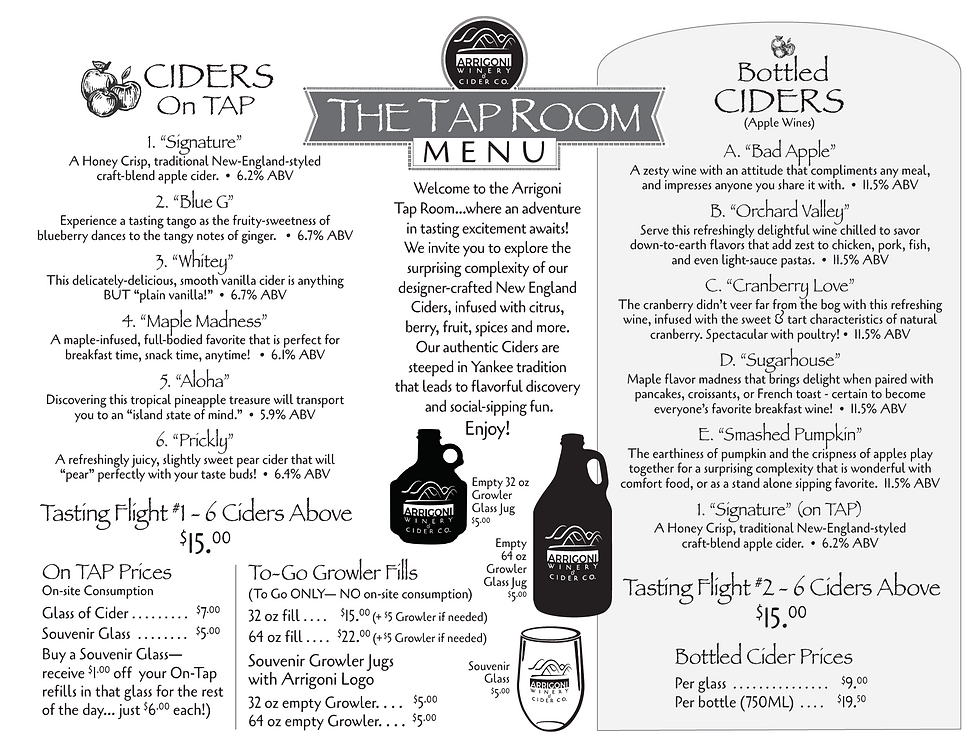 CIDERS
On TAP
1. “Signature”
A Honey Crisp, traditional New-England-styled
craft-blend apple cider. • 6.2% ABV
2. “Blue G”
Experience a tasting tango as the fruity-sweetness of
blueberry dances to the tangy notes of ginger. • 6.7% ABV
3. “Whitey”
This delicately-delicious, smooth vanilla cider is anything
BUT “plain vanilla!” • 6.7% ABV
4. “Maple Madness”
A maple-infused, full-bodied favorite that is perfect for
breakfast time, snack time, anytime! • 6.1% ABV
5. “Aloha”
Discovering this tropical pineapple treasure will transport
you to an “island state of mind.” • 5.9% ABV
6. “Prickly”
A refreshingly juicy, slightly sweet pear cider that will
“pear” perfectly with your taste buds! • 6.4% ABV
Tasting Flight #1 - 6 Ciders Above
$15.00
On TAP Prices
On-site Consumption
Glass of Cider . . . . . . . . . $7.00
Souvenir Glass . . . . . . . . $5.00
Buy a Souvenir Glass—
receive $1.00 off your On-Tap
refills in that glass for the rest
of the day... just $6.00 each!)
To-Go Growler Fills
(To Go ONLY— NO on-site consumption)
32 oz fill . . . . $15.00 (+ $5 Growler if needed)
64 oz fill . . . . $22.00 (+$5 Growler if needed)
Souvenir Growler Jugs
with Arrigoni Logo
32 oz empty Growler. . . . $5.00
64 oz empty Growler. . . . $5.00
ARRIGONI
WINERY
&
CIDER CO.
THE TAP ROOM
MENU
Welcome to the Arrigoni
Tap Room...where an adventure
in tasting excitement awaits!
We invite you to explore the
surprising complexity of our
designer-crafted New England
Ciders, infused with citrus,
berry, fruit, spices and more.
Our authentic Ciders are
steeped in Yankee tradition
that leads to flavorful discovery
and social-sipping fun.
Enjoy!
ARRIGONI
WINERY
&
CIDER CO.
Empty 32 oz
Growler
Glass Jug
$5.00
Empty
64 oz
Growler
Glass Jug
$5.00
ARRIGONI
WINERY
&
CIDER CO.
Souvenir
Glass
$5.00
ARRIGONI
WINERY
&
CIDER CO.
Bottled
CIDERS
(Apple Wines)
A. “Bad Apple”
A zesty wine with an attitude that compliments any meal,
and impresses anyone you share it with. • 11.5% ABV
B. “Orchard Valley”
Serve this refreshingly delightful wine chilled to savor
down-to-earth flavors that add zest to chicken, pork, fish,
and even light-sauce pastas. • 11.5% ABV
C. “Cranberry Love”
The cranberry didn’t veer far from the bog with this refreshing
wine, infused with the sweet & tart characteristics of natural
cranberry. Spectacular with poultry! • 11.5% ABV
D. “Sugarhouse”
Maple flavor madness that brings delight when paired with
pancakes, croissants, or French toast - certain to become
everyone’s favorite breakfast wine! • 11.5% ABV
E. “Smashed Pumpkin”
The earthiness of pumpkin and the crispness of apples play
together for a surprising complexity that is wonderful with
comfort food, or as a stand alone sipping favorite. 11.5% ABV
1. “Signature” (on TAP)
A Honey Crisp, traditional New-England-styled
craft-blend apple cider. • 6.2% ABV
Tasting Flight #2 - 6 Ciders Above
$15.00
Bottled Cider Prices
Per glass . . . . . . . . . . . . . . . $9.00
Per bottle (750ML) . . . . $19.50